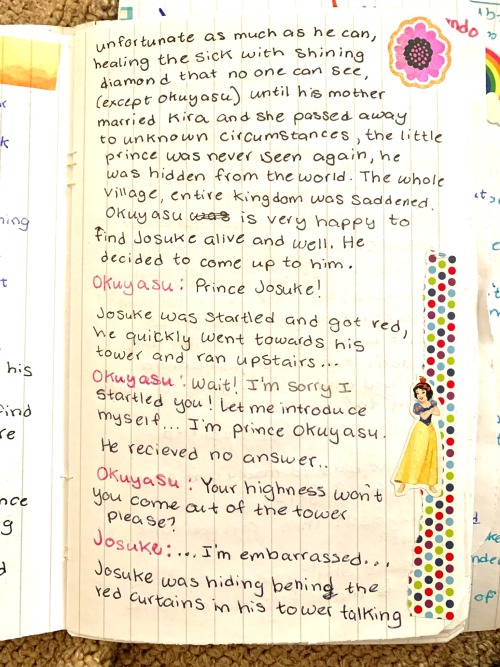 unfortunate as much as he can,
healing the sick with shining
diamond that no one can see,
(except Okuyasu) until his mother
married Kira and she passed away
to unknown circumstances, the little
prince was never seen again, he
was hidden from the world. The whole
village, entire kingdom was saddened.
Okuyasu was is very happy to
find Josuke alive and well. He
decided to come up to him.
Okuyasu: Prince Josuke!
Josuke was startled and got red,
he quickly went towards his
tower and ran upstairs...
Okuyasu: Wait! I'm sorry I
startled you! Let me introduce
myself... I'm prince Okuyasu.
He recieved no answer..
Okuyasu: Your highness won't
you come out of the tower
please?
Josuke: ... I'm embarrassed...
Josuke was hiding behind the
red curtains in his tower talking
his
find